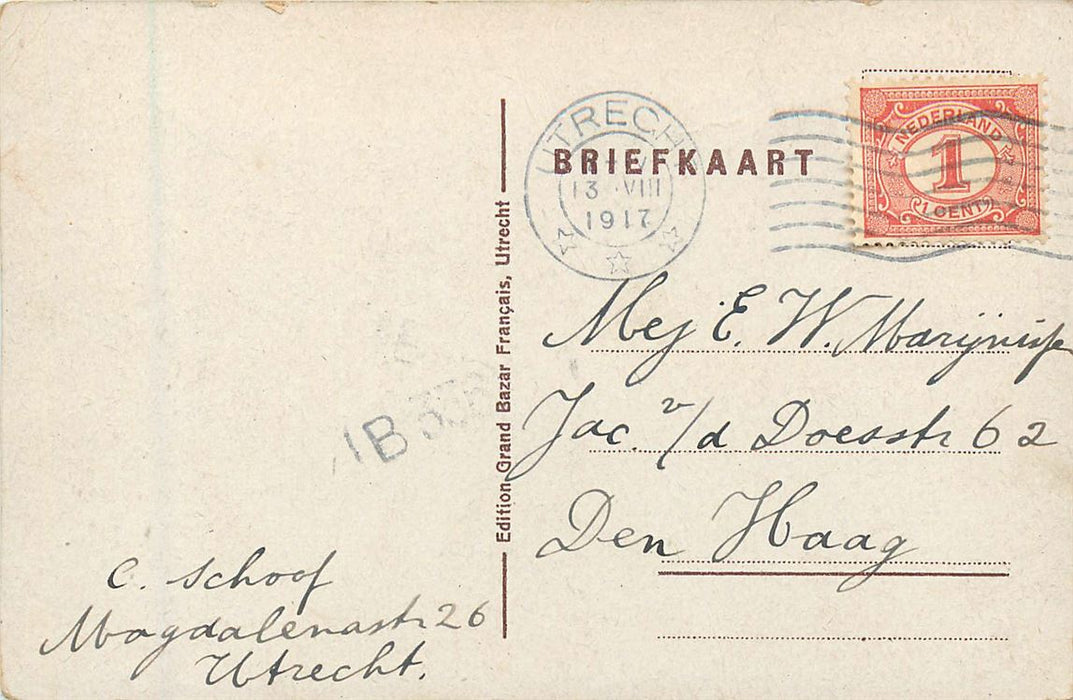 BRIEFKAART
UTRECHT
13 VIII
1917
NEDERLAND
1
1 CENT
Mej E. W. Marijnisse
Jac. v/d Doesstr 62
Den Haag
Edition Grand Bazar Français, Utrecht
1B
C. Schoof
Magdalenastr 26
Utrecht.